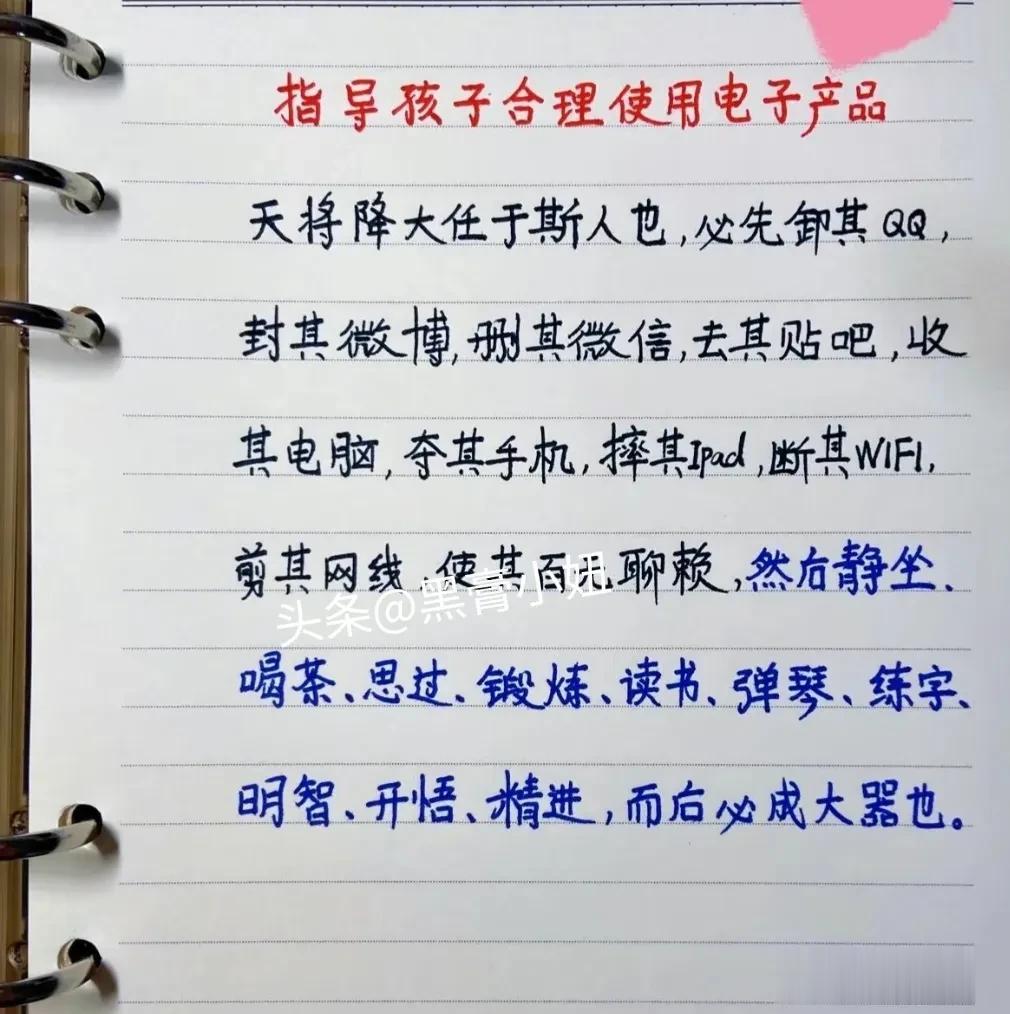 指导孩子合理使用电子产品
天将降大任于斯人也,必先卸其QQ,
封其微博,删其微信,去其贴吧,收
其电脑,夺其手机,摔其Ipad,断其WIFI,
剪其网线,使其百无聊赖,然后静坐、
喝茶、思过、锻炼、读书、弹琴、练字、
明智、开悟、精进,而后必成大器也。
头条@黑膏小妞